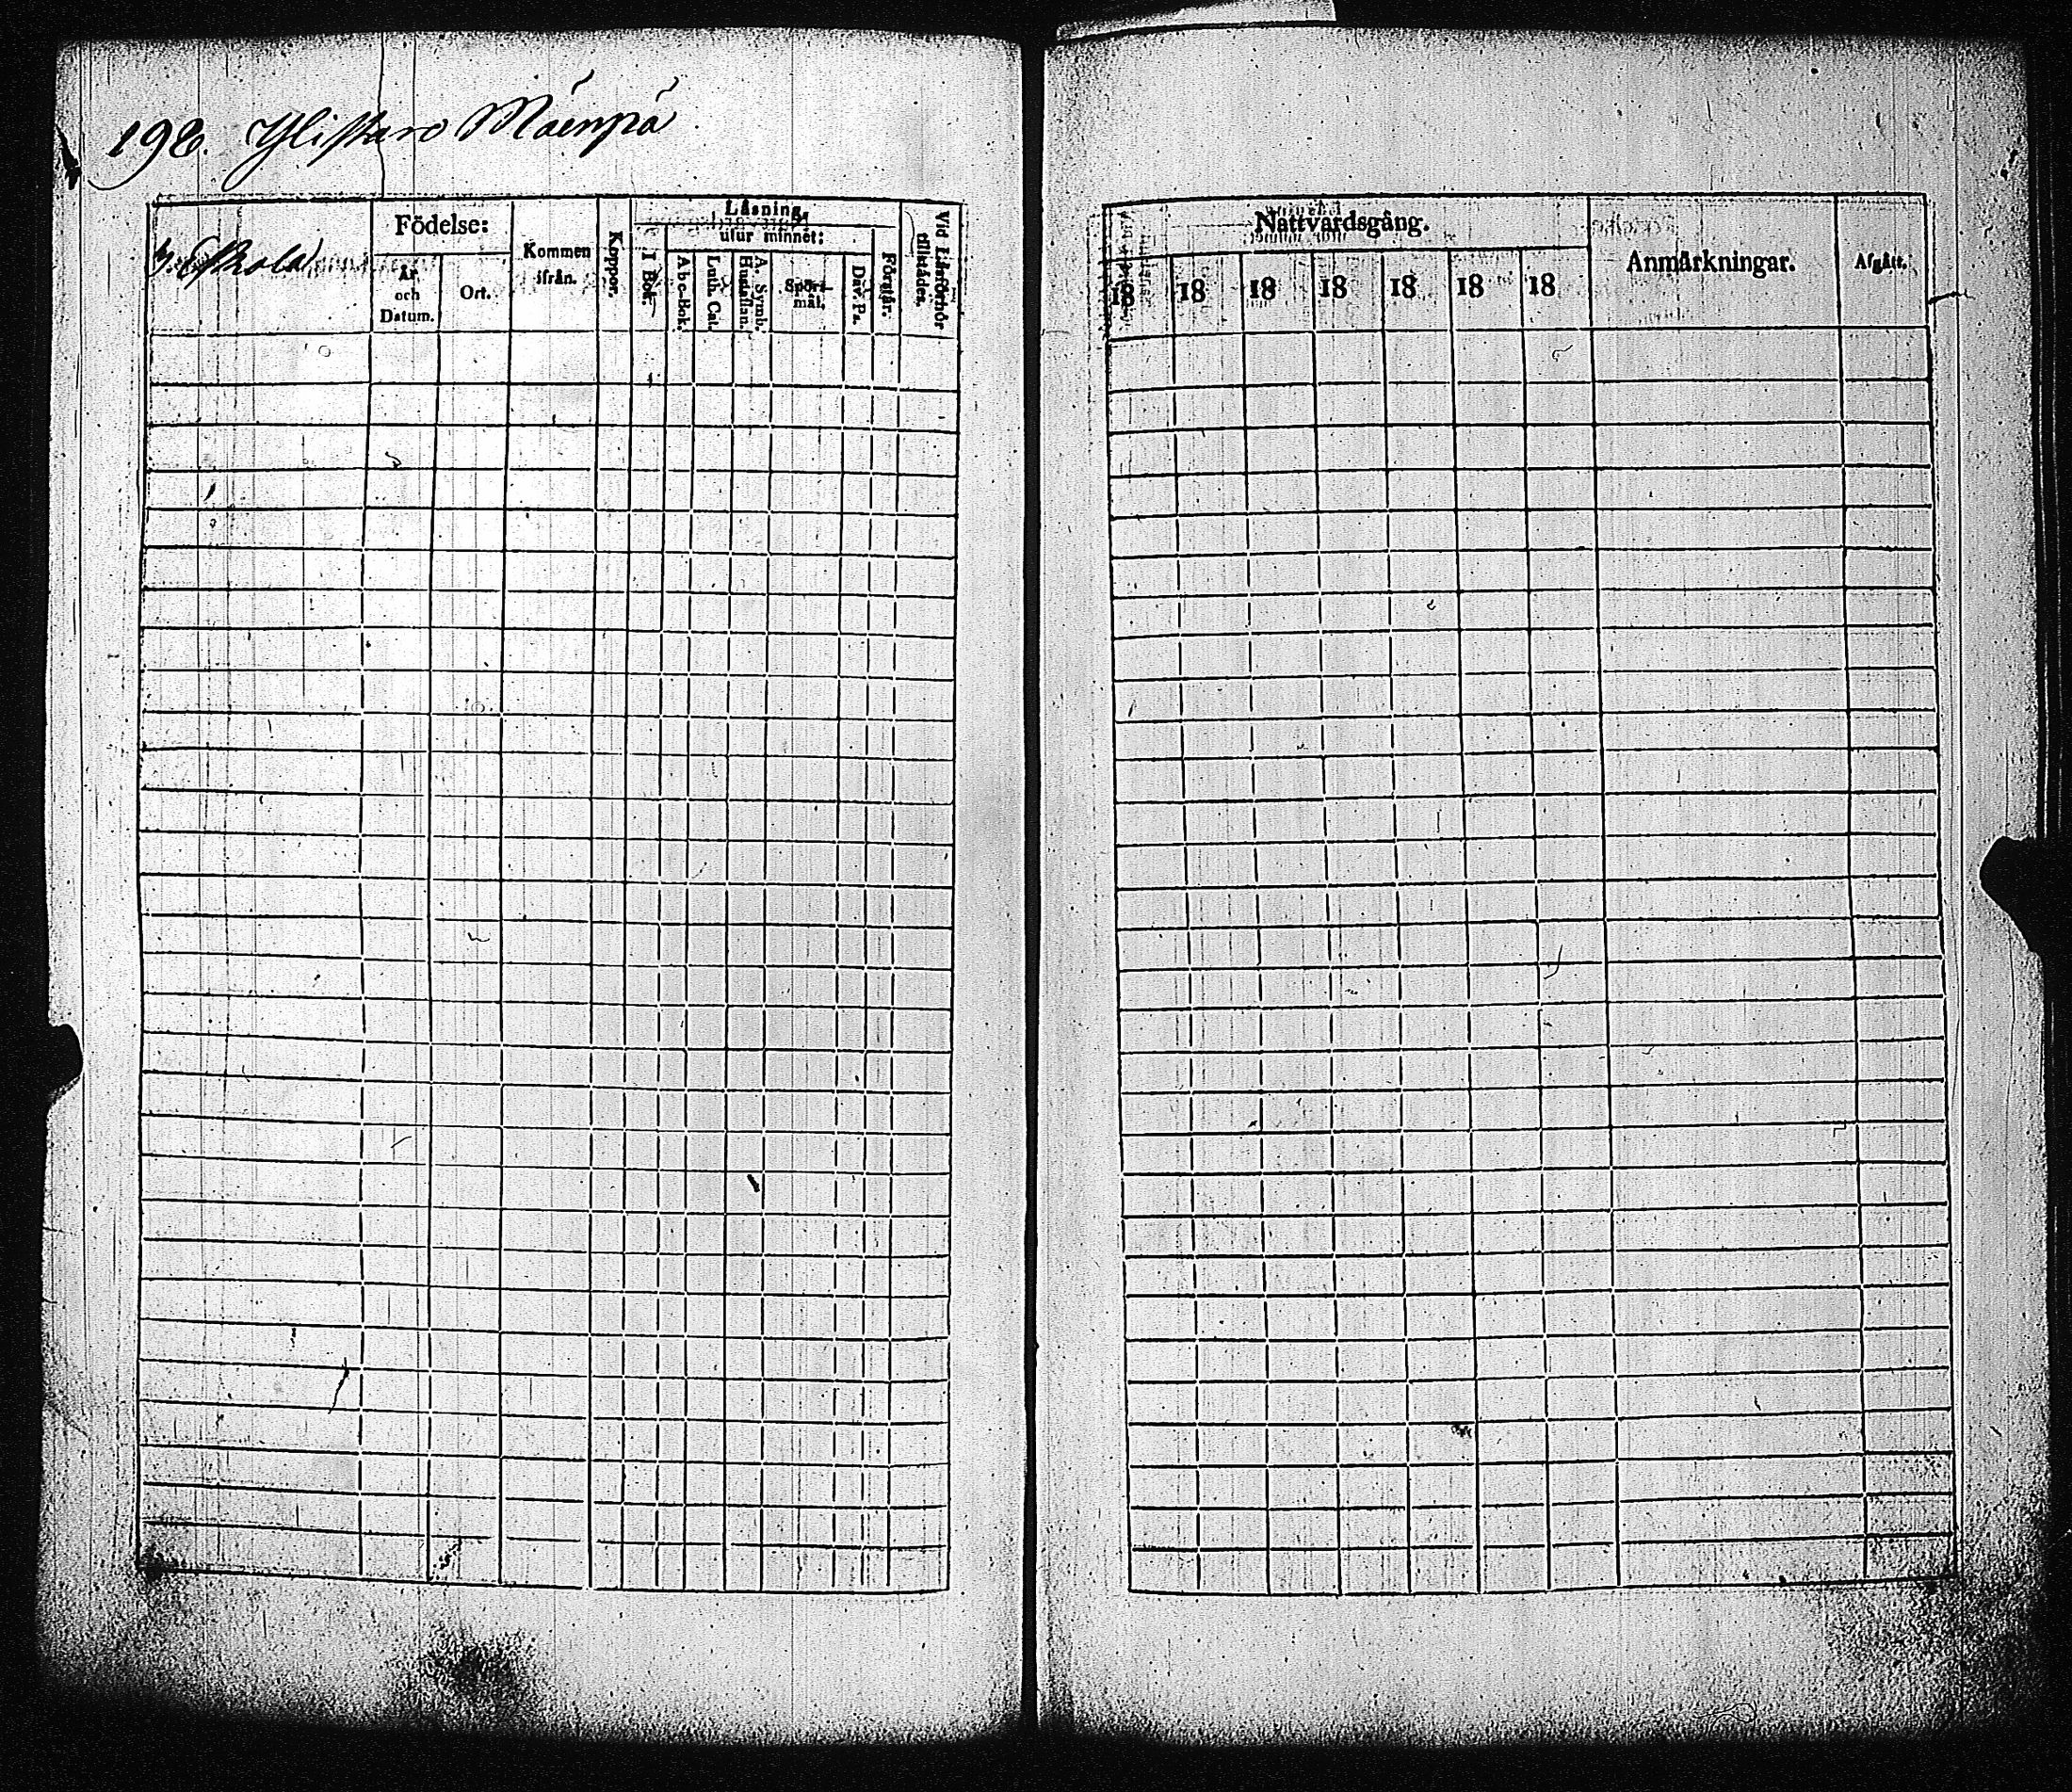 198. Ylistaro Mäenpä
Födelse:
Kommen ifrån.
Koppor.
Läsning,
utur minnet:
Vid Läsförhör tillstädes.
3. Eskola
År och Datum.
Ort.
I Bok.
Abc-Bok.
Luth. Cat.
A. Symb. Hustaflan.
Spörs-mål.
Dav. Ps.
Förstår.
Nattvardsgång.
Anmärkningar.
Afgått.
18 18 18 18 18 18 18